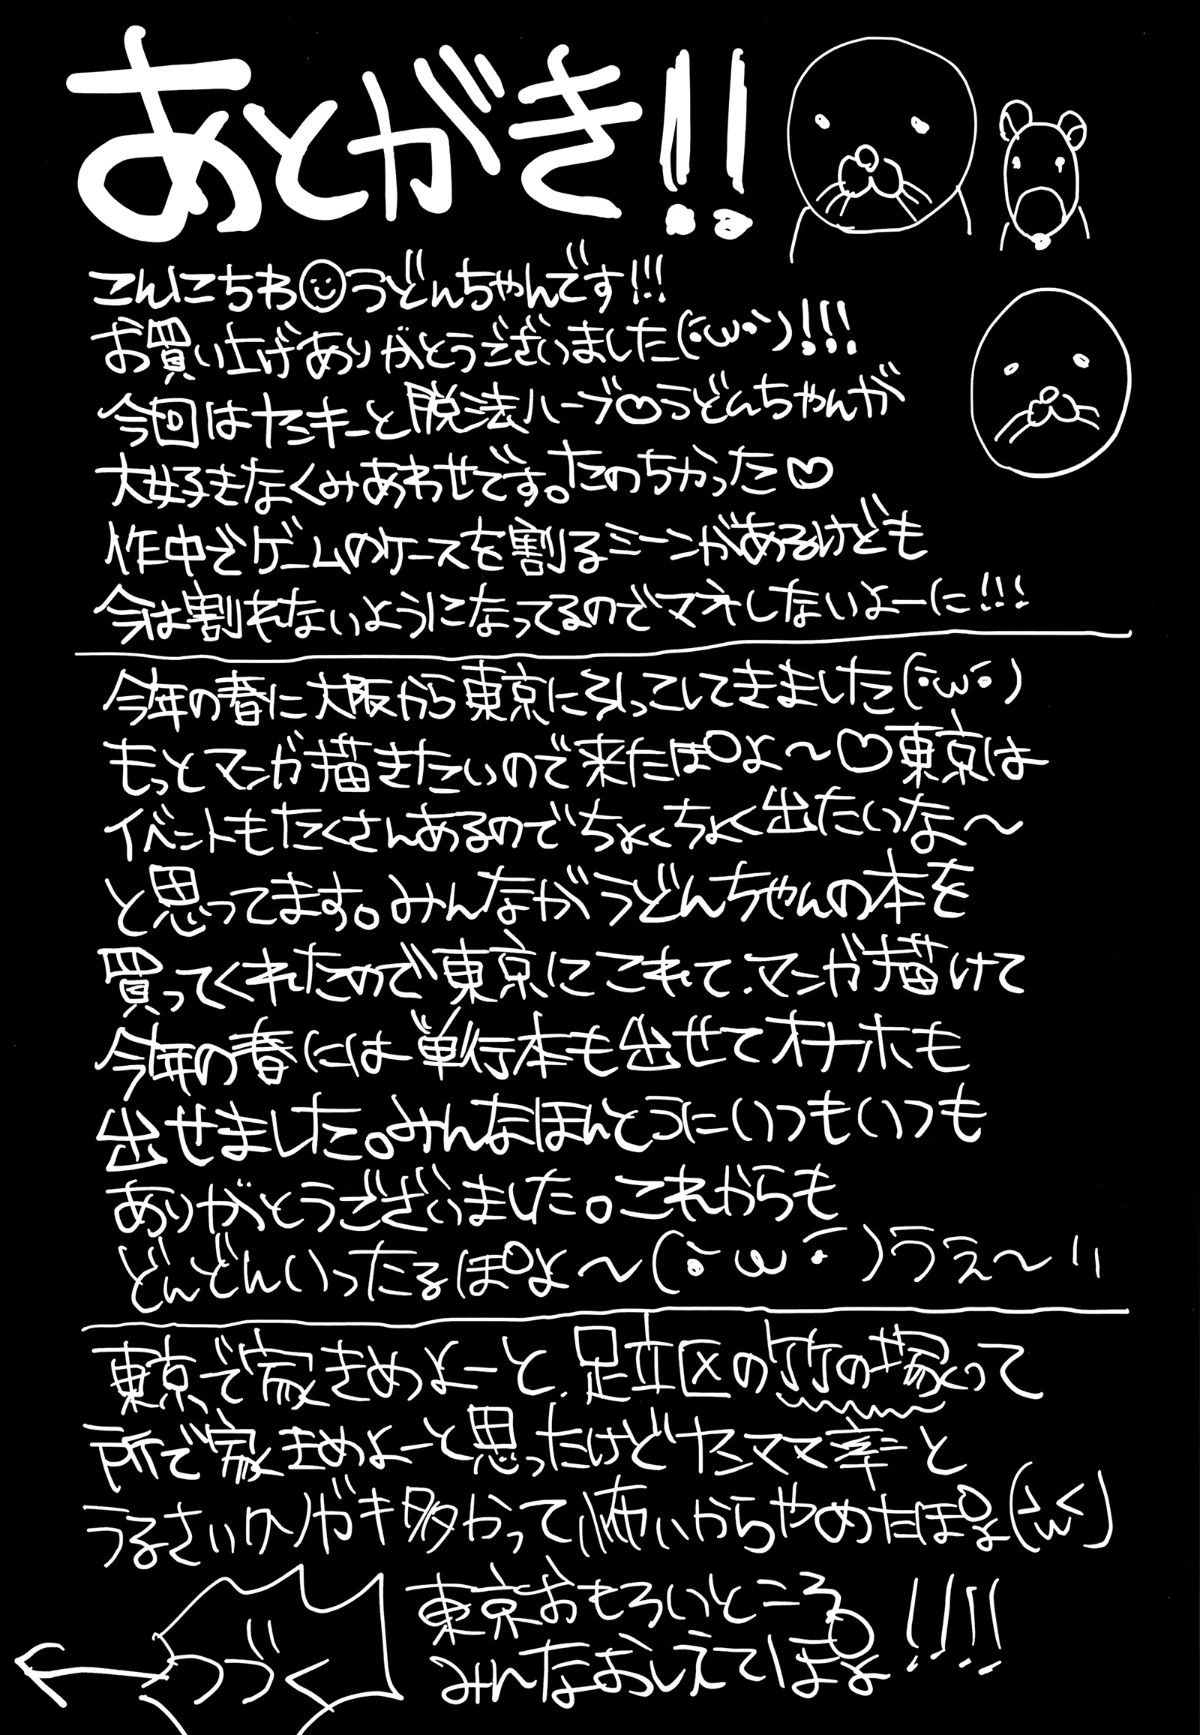 あとがき!!
こんにちわ☺うどんちゃんです!!!
お買い上げありがとうございました(・ω・`)!!!
今回はヤミキーと脱法ハーブ♡うどんちゃんが
大好きなくみあわせです。たのちかった♡
作中でゲームのケースを割るシーンがあるけども
今は割れないようになってるのでマネしないよーに!!!
今年の春に大阪から東京に引っこしてきました(・ω・)
もっとマンガ描きたいので来たぽよ〜♡東京は
イベントもたくさんあるのでちょくちょく出たいな〜
と思ってます。みんながうどんちゃんの本を
買ってくれたので東京にこれて、マンガ描けて
今年の春には単行本も出せてオナホも
出せました。みんなほんとうにいつもいつも
ありがとうございました。これからも
どんどんいったるぽよ〜(・ω・)うぇ〜!!
東京で家きめよーと、足立区の竹の塚って
所で家きめよーと思ったけどヤンママ率と
うるさいクソガキ多かって怖いからやめたぽよ
東京おもろいところ
みんなおしえてぽよ!!!!
つづく